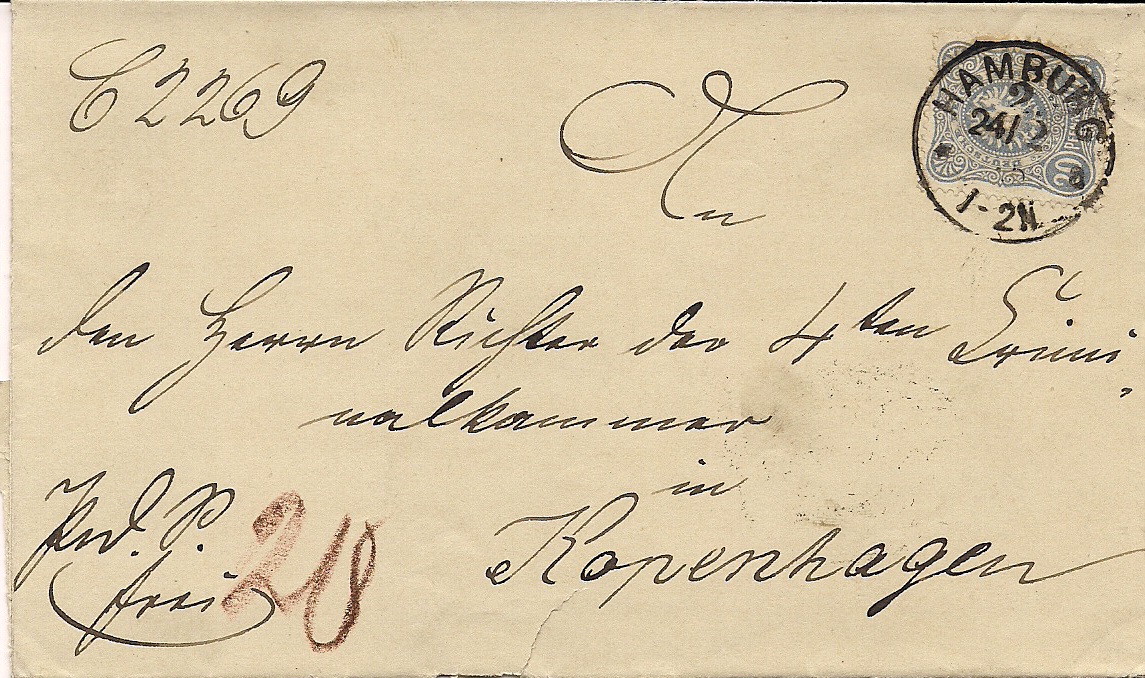 C 2269
An
den Herrn Richter der 4ten Crimi-
nalkammer
in
Kopenhagen
frei
20
HAMBURG
24/2
1-2N.
a
20 PFENNIG